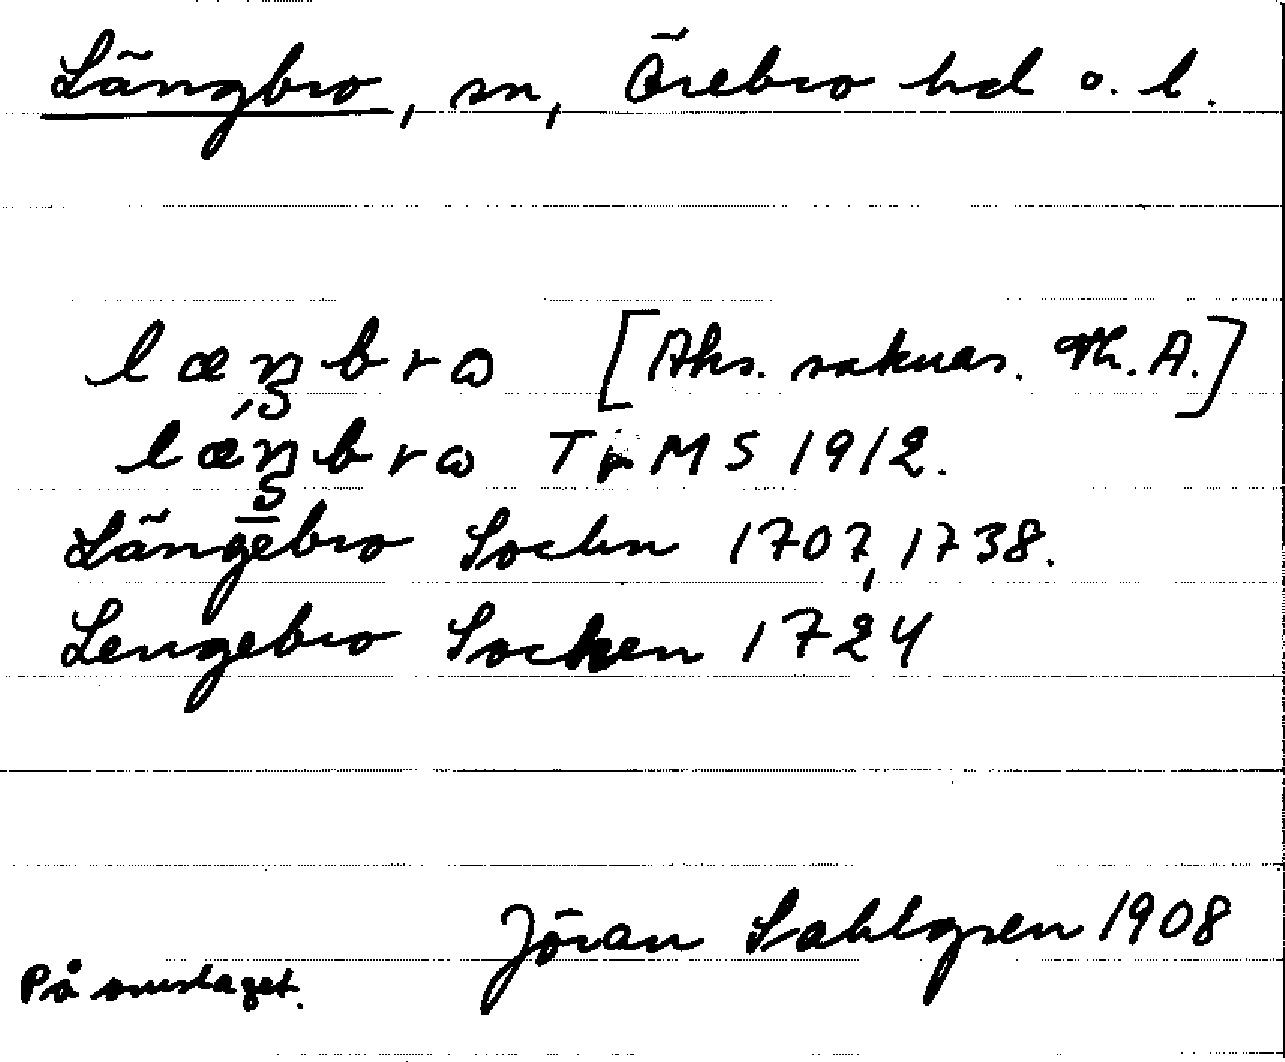 Längbro, sn, Örebro hd o. l.
læŋbrω [Aks. saknas. Th. A.]
læŋbrω T. MS 1912.
Längebro Sochn 1707, 1738.
Lengebro Socken 1724
Jöran Sahlgren 1908
På omslaget.